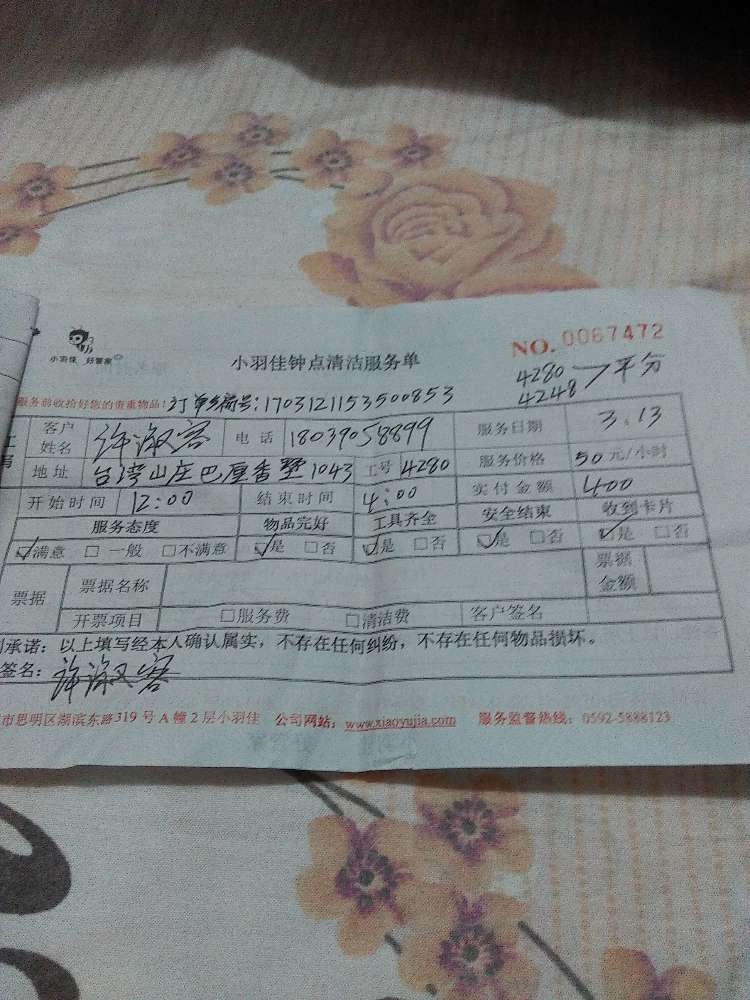 小羽佳 好管家
小羽佳钟点清洁服务单
NO. 0067472
4280
4248 平分
服务前收拾好您的贵重物品! 订单编号:1703121153500853
客户姓名 许淑容 电话 18039058899 服务日期 3.13
地址 台湾山庄巴厘香墅1043 工号 4280 服务价格 50元/小时
开始时间 12:00 结束时间 4:00 实付金额 400
服务态度 物品完好 工具齐全 安全结束 收到卡片
☑满意 □一般 □不满意 ☑是 □否 ☑是 □否 ☑是 □否 ☑是 □否
票据 票据名称 票据金额
开票项目 □服务费 □清洁费 客户签名
承诺:以上填写经本人确认属实,不存在任何纠纷,不存在任何物品损坏。
签名:许淑容
市思明区湖滨东路319号A幢2层小羽佳 公司网站:www.xiaoyujia.com 服务监督热线:0592-5888123